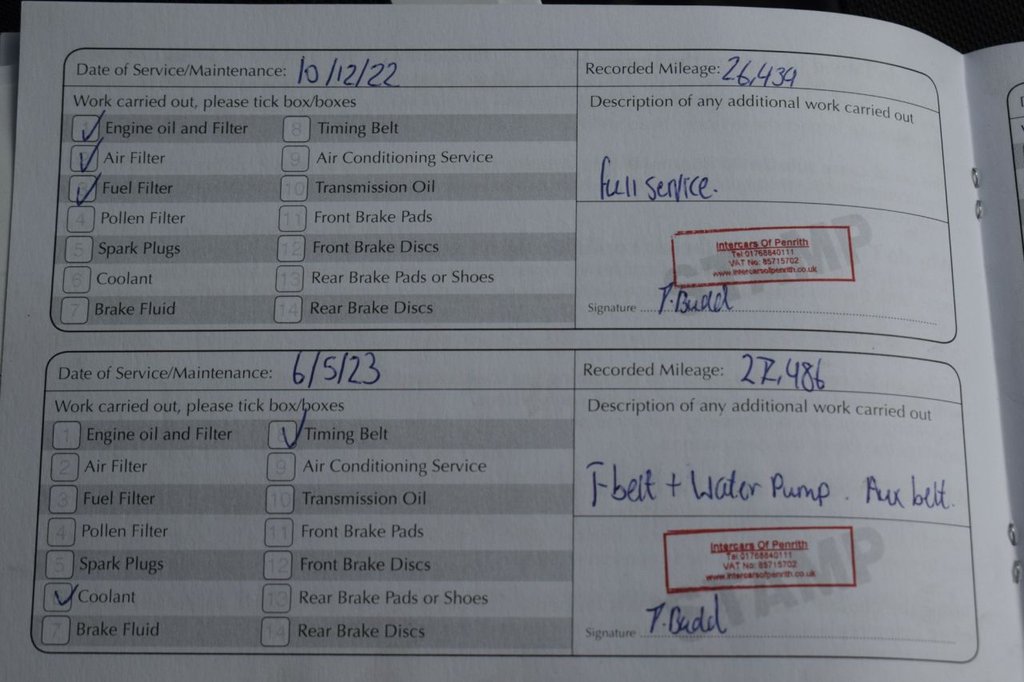 Date of Service/Maintenance: 10/12/22
Recorded Mileage: 26,439
Work carried out, please tick box/boxes
Description of any additional work carried out
Engine oil and Filter
8 Timing Belt
Air Filter
9 Air Conditioning Service
Fuel Filter
10 Transmission Oil
full service.
4 Pollen Filter
11 Front Brake Pads
5 Spark Plugs
12 Front Brake Discs
6 Coolant
13 Rear Brake Pads or Shoes
7 Brake Fluid
14 Rear Brake Discs
STAMP
Intercars Of Penrith
Tel:01768840111
VAT No: 85715702
www.intercarsofpenrith.co.uk
Signature T.Budd
Date of Service/Maintenance: 6/5/23
Recorded Mileage: 27,486
Work carried out, please tick box/boxes
Description of any additional work carried out
1 Engine oil and Filter
Timing Belt
2 Air Filter
9 Air Conditioning Service
3 Fuel Filter
10 Transmission Oil
T-belt + Water Pump. Aux belt.
4 Pollen Filter
11 Front Brake Pads
5 Spark Plugs
12 Front Brake Discs
Coolant
13 Rear Brake Pads or Shoes
7 Brake Fluid
14 Rear Brake Discs
STAMP
Intercars Of Penrith
Tel:01768840111
VAT No: 85715702
www.intercarsofpenrith.co.uk
Signature T.Budd